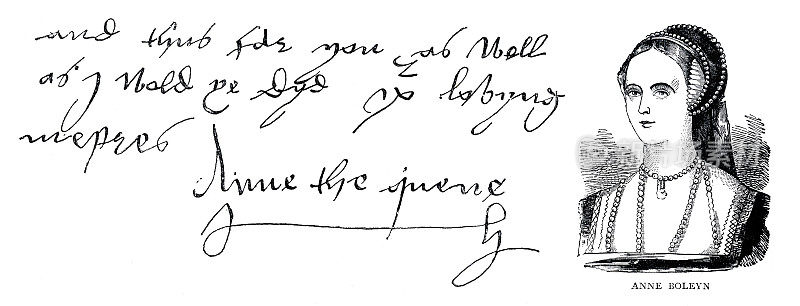 and thus far you as well
as I wold ye dyd yo lovyng
mestres
Anne the quene
ANNE BOLEYN